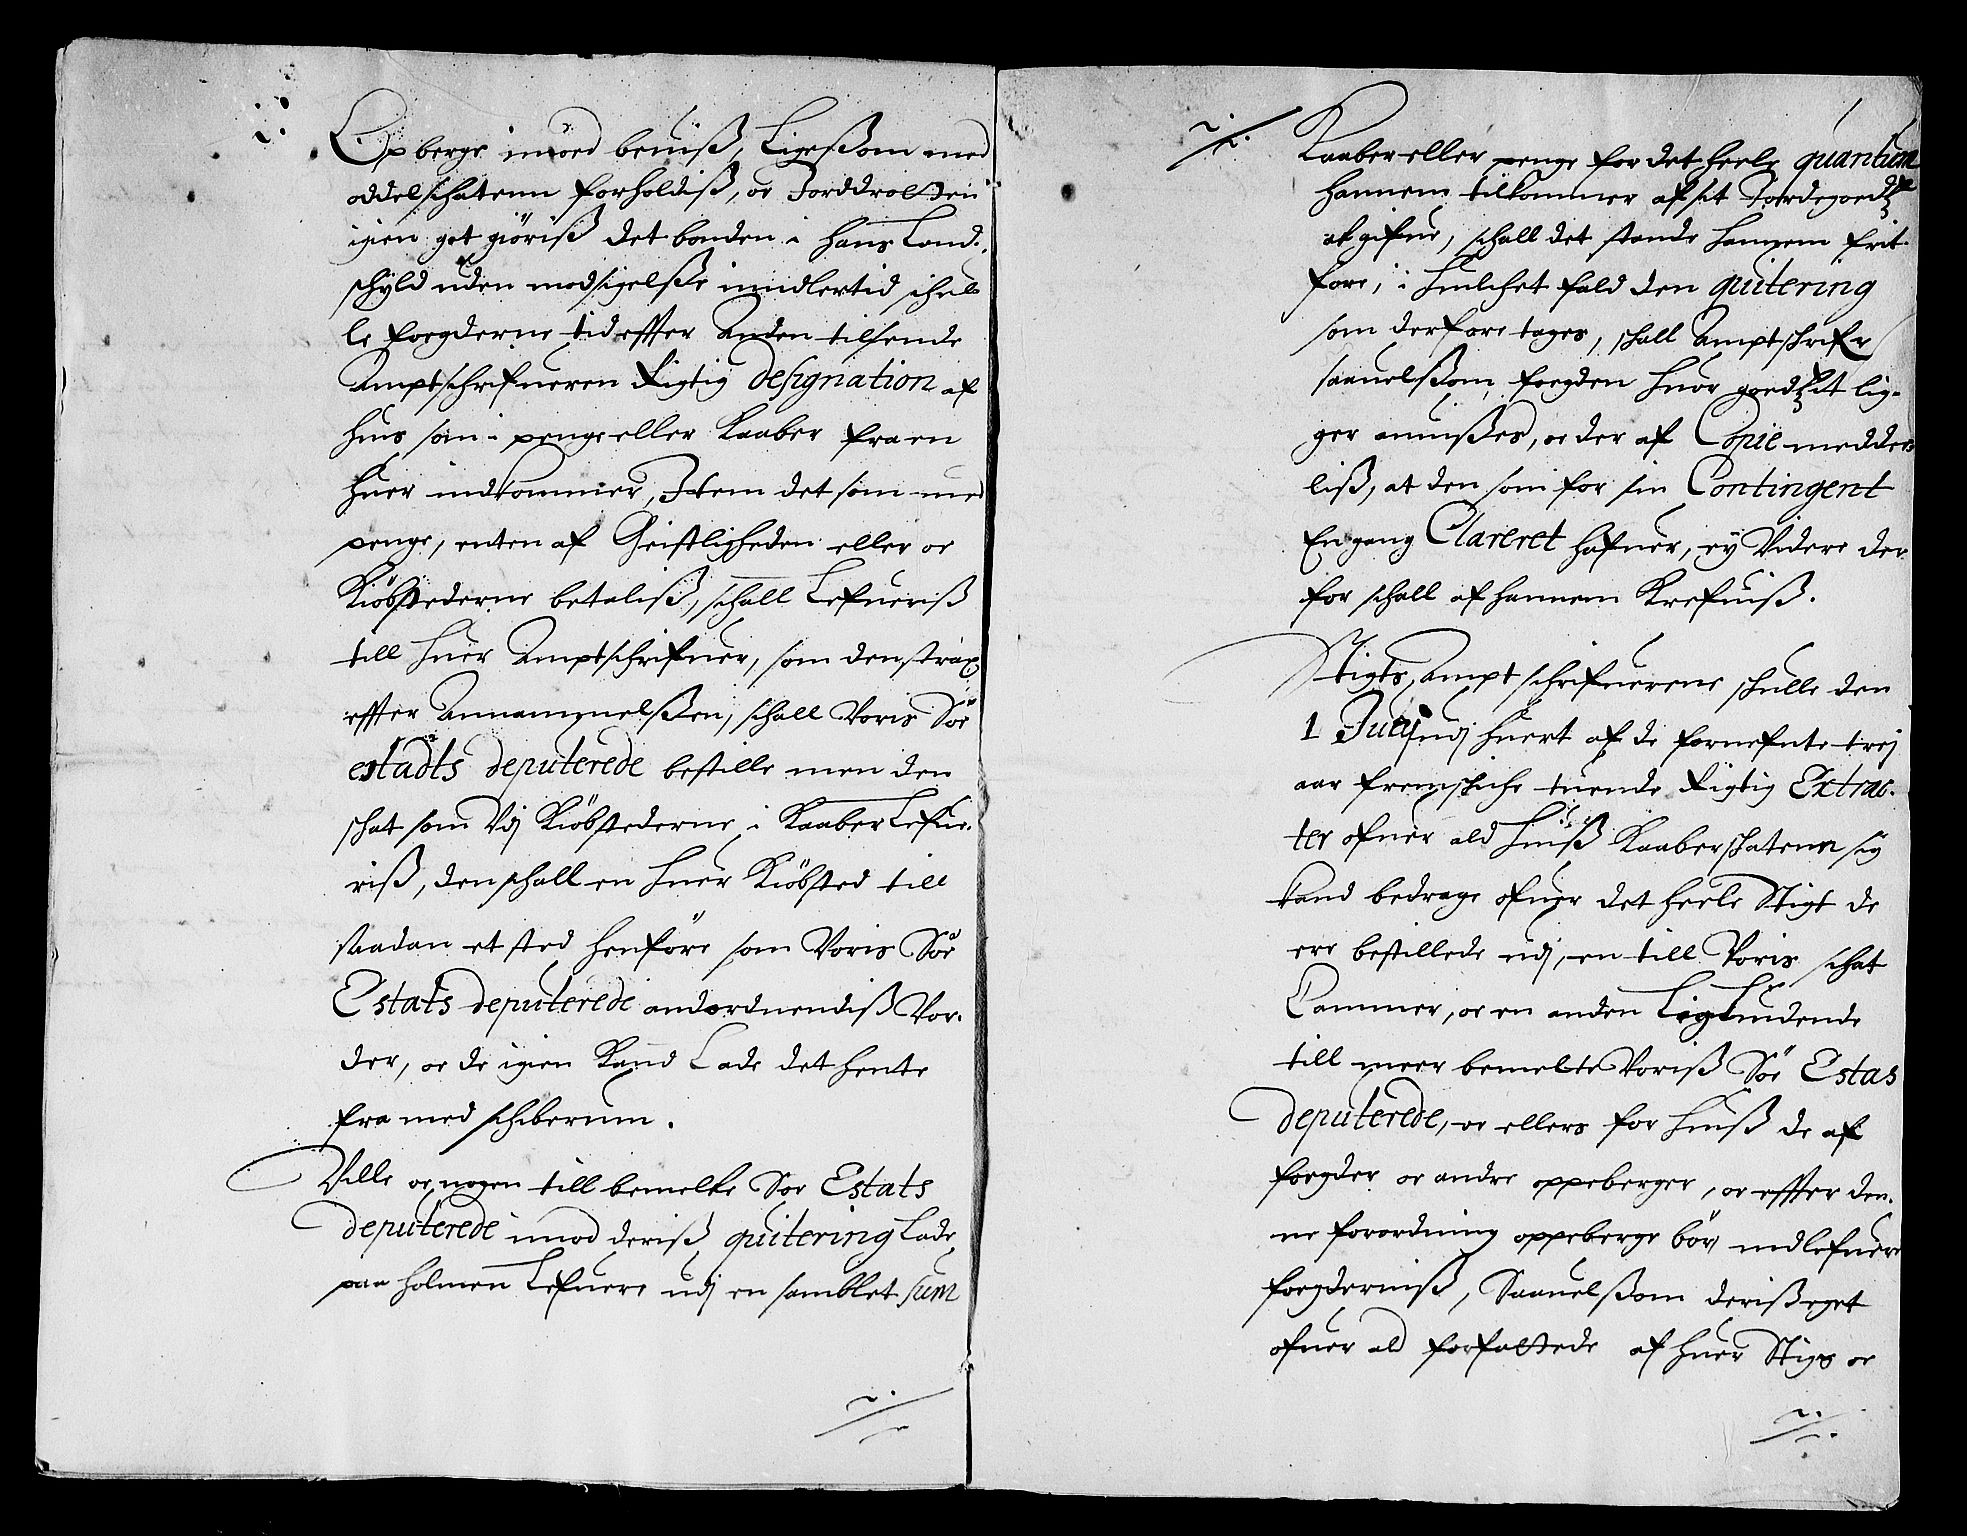 Opberge imod beuiß, Ligeßom med
oddelschatenn forholdiß, oc Jorddrotten
igien got giöriß det bonden i hans Land-
schyld uden modsigelße imidlertid schul-
le foegderne tid effter Anden tilsende
Amptschrifueren Rigtig designation af
huis som i penge eller Kaaber fra en
huer indkommer, Item det som med
penge, enten af Geistligheden eller oc
Kiöbstederne betaliß, schall Lefueriß
till huer Amptschrifuer, som den strax
effter Annammelßen, schall Voris Söe
estadts deputerede bestille men den
schat som Vdj Kiöbstederne i Kaaber Lefue-
riß, den schall en huer Kiöbsted till
saadan et sted henföre som Voris Söe
Estats deputerede andordnendiß Vor-
der, oc de igien Kand Lade det hente
fra med schiberum.
Ville oc nogen till bemelte Söe Estats
deputerede imod deriß quitering Lade
paa holmen Lefuere udj en samblet sum
Kaaber eller penge for det heele quantum
hannem tilkommer af sit Jordegoedtz
at gifue, schall det stande hannem frit
fore, i huilchet fald den quitering
som derfore tages, schall Amptschrifr
saauelßom foegden huor goedtzit lig-
ger anuißes, oc der af Copie meddee-
liß, at den som for sin Contingent
En gang Clareret hafuer, ey Videre der-
for schall af hannem Krefuiß.
Stigts Amptschrifuerene schulle den
1 Julij udj huert af de fornefnte trej
aar fremschiche tuende Rigtig Extrac-
ter ofuer ald huiß Kaaberschatenn sig
kand bedrage ofuer det heele Stigt de
ere bestillede udj, en till Voris schat
Cammer, oc en anden Ligelydende
till meer bemelte Voriß Söe Estas
deputerede, oc ellers for huiß de af
foegder oc andre oppeberger, oc effter den-
ne forordning oppeberge bör, indlefuere
foegderniß, Saauelßom deriß eget
ofuer ald forfattede af huer Stigs oc